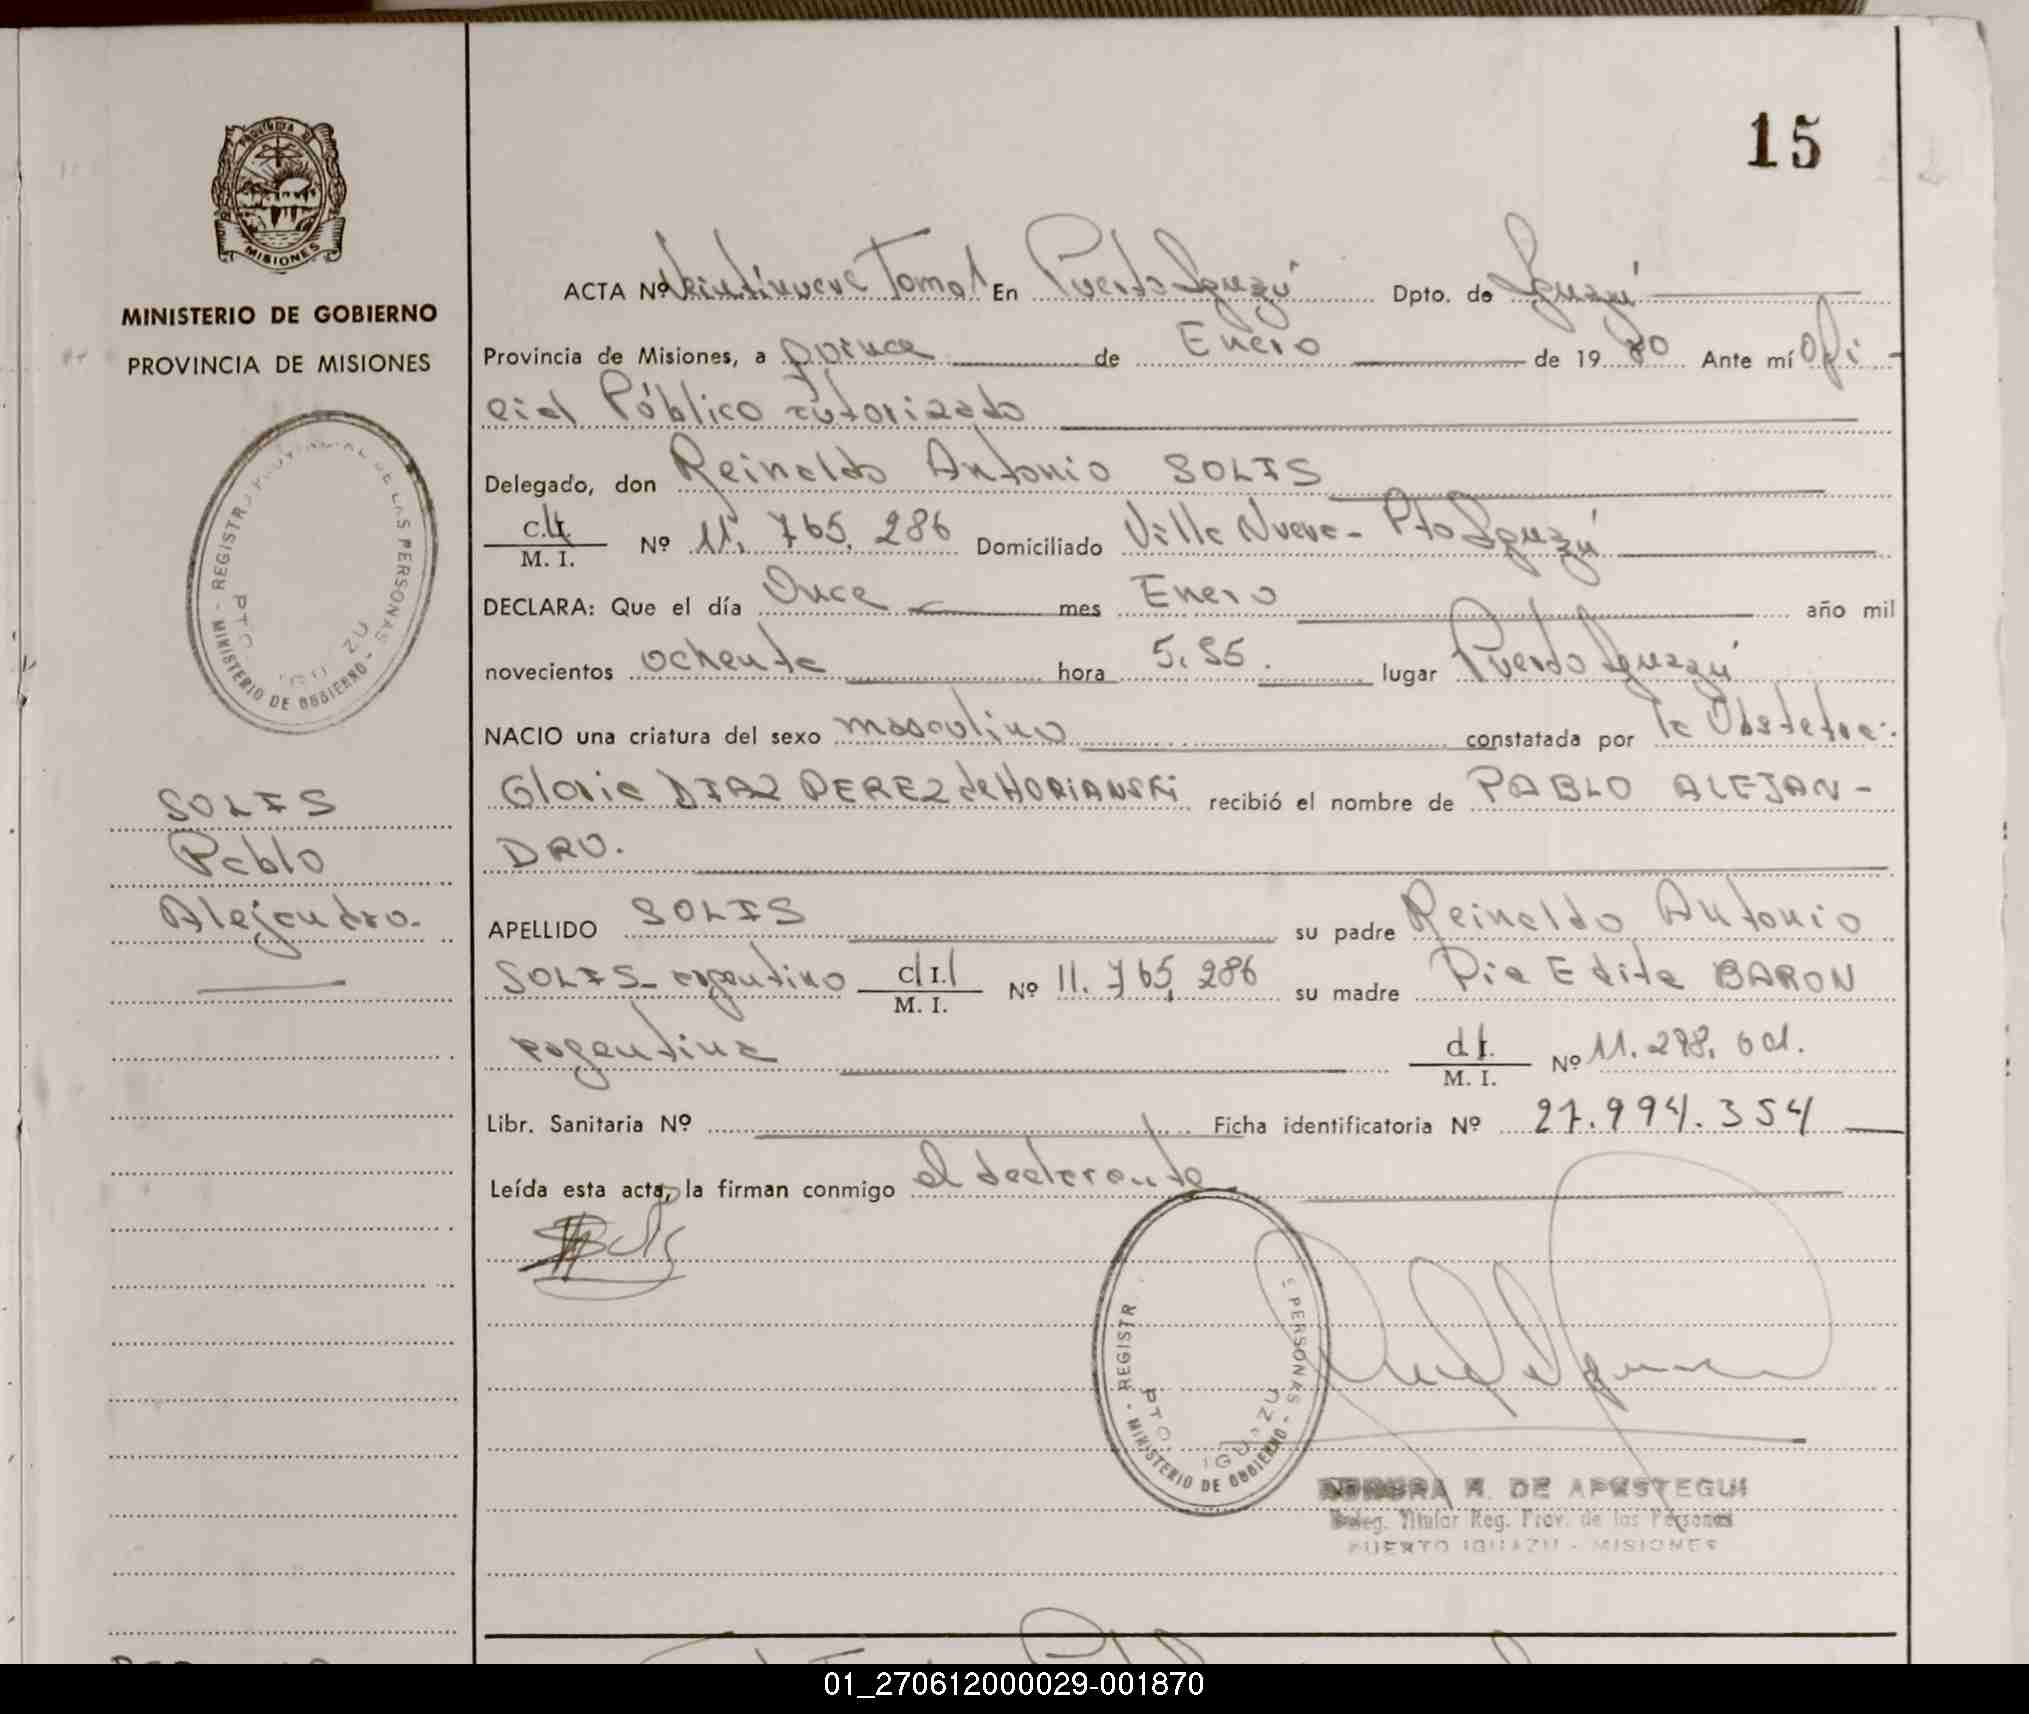 15
PROVINCIA DE
MISIONES
MINISTERIO DE GOBIERNO
PROVINCIA DE MISIONES
REGISTRO PROVINCIAL DE LAS PERSONAS
- MINISTERIO DE GOBIERNO -
PTO. IGUAZU
SOLIS
Pablo
Alejandro.
ACTA Nº Veintinueve Tomo I En Puerto Iguazú Dpto. de Iguazú
Provincia de Misiones, a quince de Enero de 1980 Ante mí Ofi-
cial Público autorizado
Delegado, don Reinaldo Antonio SOLIS
C.I.
M. I. Nº 11.765.286 Domiciliado Villa Nueva - Pto Iguazú
DECLARA: Que el día Once mes Enero año mil
novecientos ochenta hora 5.55. lugar Puerto Iguazú
NACIO una criatura del sexo masculino constatada por la Obstetra:
Gloria DIAZ PEREZ de HORIANSKI recibió el nombre de PABLO ALEJAN-
DRO.
APELLIDO SOLIS su padre Reinaldo Antonio
SOLIS - argentino C.I.
M. I. Nº 11.765.286 su madre Pia Edita BARON
argentina C.I.
M. I. Nº 11.298.
Libr. Sanitaria Nº Ficha identificatoria Nº 27.994.354
Leída esta acta, la firman conmigo el declarante
REGISTR E PERSONAS
- MINISTERIO DE GOBIERNO -
PTO. IGUAZU
DE APESTEGUI
Deleg. Titular Reg. Prov. de las Personas
PUERTO IGUAZU - MISIONES
01_270612000029-001870